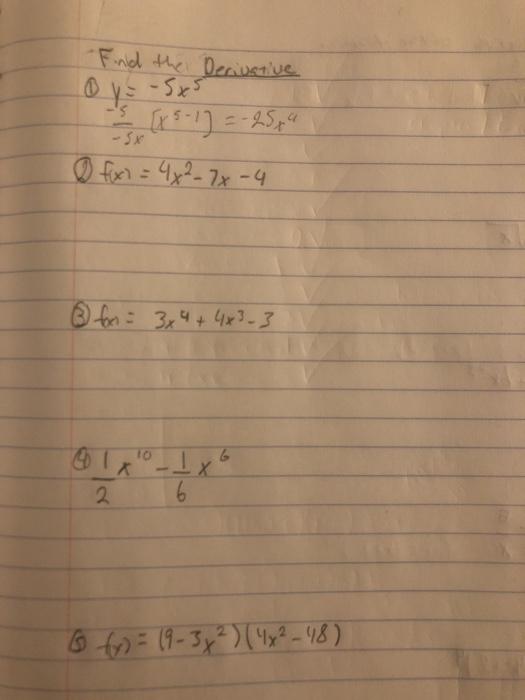 Find the Derivative
① y = -5x⁵
-5/-5x [x⁵⁻¹] = -25x⁴
② f(x) = 4x² - 7x - 4
③ f(x) = 3x⁴ + 4x³ - 3
④ 1/2 x¹⁰ - 1/6 x⁶
⑤ f(x) = (9 - 3x²)(4x² - 48)